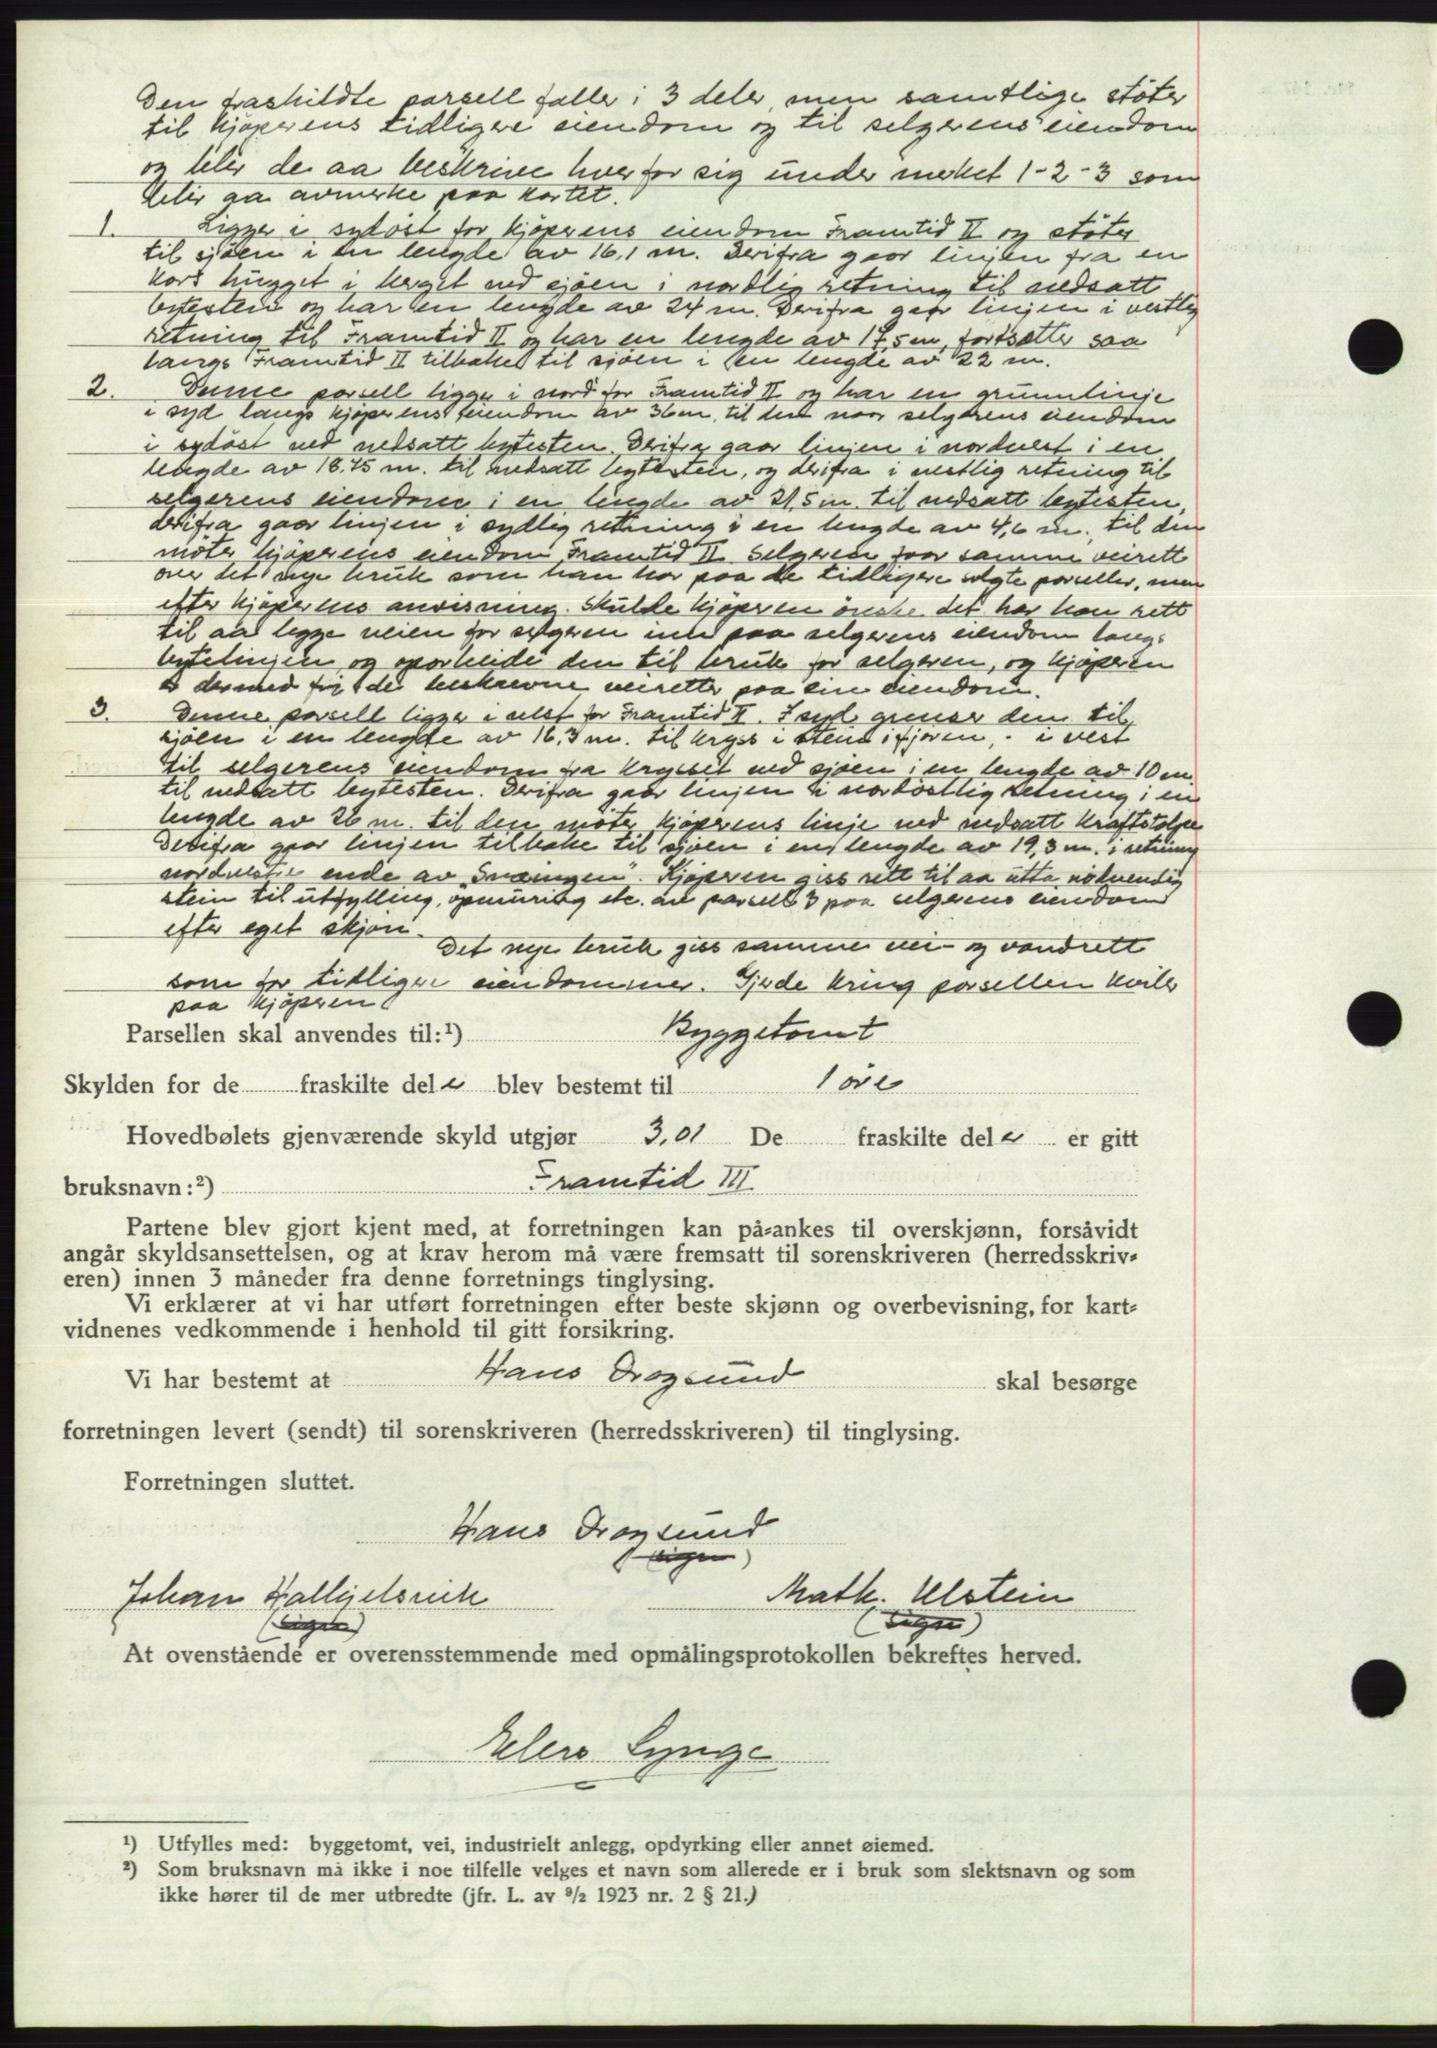 Den frashildte parsell faller i 3 deler, men samtlige stöter
til kjöperens tidligere eiendom og til selgerens eiendom
og blir de aa beskrive hver for sig under merket 1-2-3 som
blir aa avmerke paa kartet.
1. Ligger i sydöst for kjöperens eiendom Framtid II og stöter
til sjöen i en lengde av 16,1 m. Derifra gaar linjen fra en
kors hugget i berget ved sjöen i nordlig retning til nedsatt
bytesten og har en lengde av 24 m. Derifra gaar linjen i vestlig
retning til Framtid II og har en lengde av 17,5 m, fortsetter saa
langs Framtid II tilbake til sjöen i en lengde av 22 m.
2. Denne parsell ligger i nord for Framtid II og har en grunnlinje
i syd langs kjöperens eiendom av 36 m. til den naar selgerens eiendom
i sydöst ved nedsatt bytesten. Derifra gaar linjen i nordvest i en
lengde av 18.75 m. til nedsatt bytesten, og derifra i vestlig retning til
selgerens eiendom i en lengde av 21,5 m. til nedsatt bytesten,
derifra gaar linjen i sydlig retning i en lengde av 4,6 m. til den
möter kjöperens eiendom Framtid II. Selgeren faar samme veirett
over det nye bruk som han har paa de tidligere solgte parseller, men
efter kjöperens anvisning. Skulde kjöperen önske det har han rett
til aa legge veien for selgeren inn paa selgerens eiendom langs
bytelinjen og oparbeide den til bruk for selgeren, og kjöperen
er dermed fri de beskrevne veiretter paa sin eiendom.
3. Denne parsell ligger i vest for Framtid II. I syd grenser den til
sjöen i en lengde av 16,3 m. til kryss i stein i fjæren, - i vest
til selgerens eiendom fra krysset ved sjöen i en lengde av 10 m.
til nedsatt bytesten. Derifra gaar linjen i nordöstlig retning i en
lengde av 26 m. til den möter kjöperens linje ved nedsatt kraftstolpe
Derifra gaar linjen tilbake til sjöen i en lengde av 19,3 m. i retning
nordvestre ende av "Svaingen". Kjöperen giss rett til aa utta nödvendig
stein til utfylling, opmuring etc. av parsell 3 paa selgerens eiendom
efter eget skjön.
Det nye bruk giss samme vei- og vandrett
som for tidligere eiendommer. Gjerde kring parsellen kviler
paa kjöperen
Parsellen skal anvendes til:¹) Byggetomt
Skylden for de fraskilte del er blev bestemt til 1 öre
Hovedbølets gjenværende skyld utgjør 3,01 De fraskilte del er er gitt
bruksnavn:²) Framtid III
Partene blev gjort kjent med, at forretningen kan på-ankes til overskjønn, forsåvidt
angår skyldsansettelsen, og at krav herom må være fremsatt til sorenskriveren (herredsskriv-
eren) innen 3 måneder fra denne forretnings tinglysing.
Vi erklærer at vi har utført forretningen efter beste skjønn og overbevisning, for kart-
vidnenes vedkommende i henhold til gitt forsikring.
Vi har bestemt at Hans Dragsund skal besørge
forretningen levert (sendt) til sorenskriveren (herredsskriveren) til tinglysing.
Forretningen sluttet.
Hans Dragsund
(sign)
Johan Hatlijelsvik Math. Ulstein
(sign) (sign)
At ovenstående er overensstemmende med opmålingsprotokollen bekreftes herved.
Elers Lynge
¹) Utfylles med: byggetomt, vei, industrielt anlegg, opdyrking eller annet øiemed.
²) Som bruksnavn må ikke i noe tilfelle velges et navn som allerede er i bruk som slektsnavn og som
ikke hører til de mer utbredte (jfr. L. av ⁹/₂ 1923 nr. 2 § 21.)